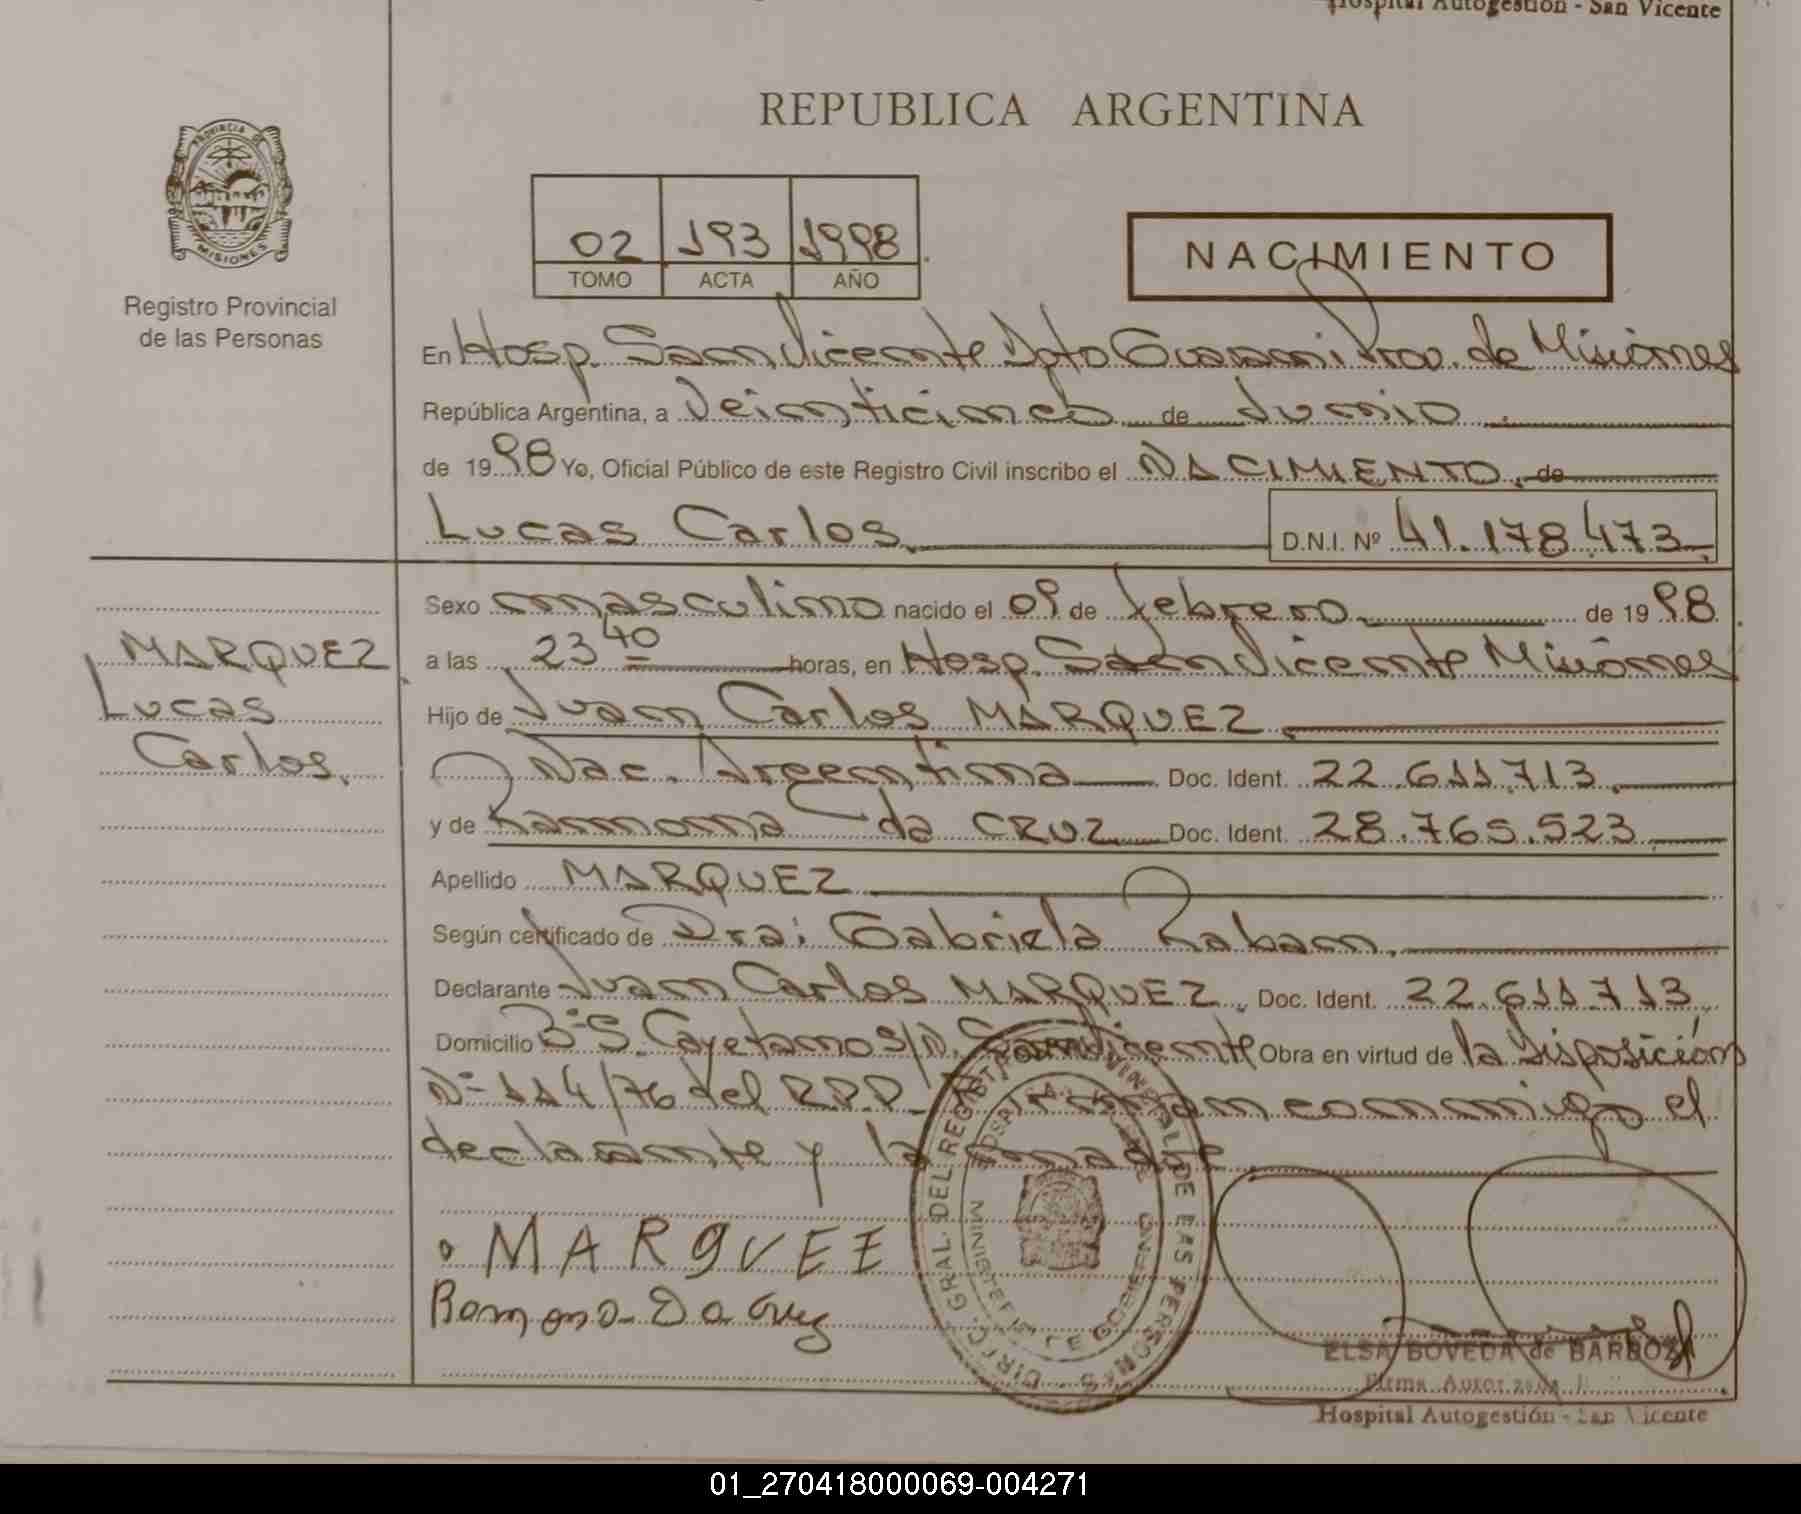 Hospital Autogestión - San Vicente
REPUBLICA ARGENTINA
PROVINCIA DE MISIONES
Registro Provincial
de las Personas
02 193 1998
TOMO ACTA AÑO
NACIMIENTO
En Hosp. San Vicente Dpto Guarani Prov. de Misiones
República Argentina, a Veinticinco de Junio
de 1998 Yo, Oficial Público de este Registro Civil inscribo el NACIMIENTO de
Lucas Carlos D.N.I. Nº 41.178.473
Sexo masculino nacido el 09 de febrero de 1998
MARQUEZ
Lucas
Carlos
a las 23 40 horas, en Hosp. San Vicente Misiones
Hijo de Juan Carlos MARQUEZ
Nac. Argentina Doc. Ident. 22.611.713
y de Ramona da CRUZ Doc. Ident. 28.765.523
Apellido MARQUEZ
Según certificado de Dra: Gabriela Raban
Declarante Juan Carlos MARQUEZ, Doc. Ident. 22.611.713
Domicilio Bº S. Cayetano S/N. San Vicente Obra en virtud de la Disposición
Nº 114/76 del R.P.P. Firman conmigo el
declarante y la madre
MARQUEZ
Ramona Da Cruz
DIRCC. GRAL. DEL REGISTRO PROVINCIAL DE LAS PERSONAS
MINISTERIO DE GOBIERNO
ELSA BOVEDA de BARBOZA
Firma Autorizada
Hospital Autogestión - San Vicente
01_270418000069-004271